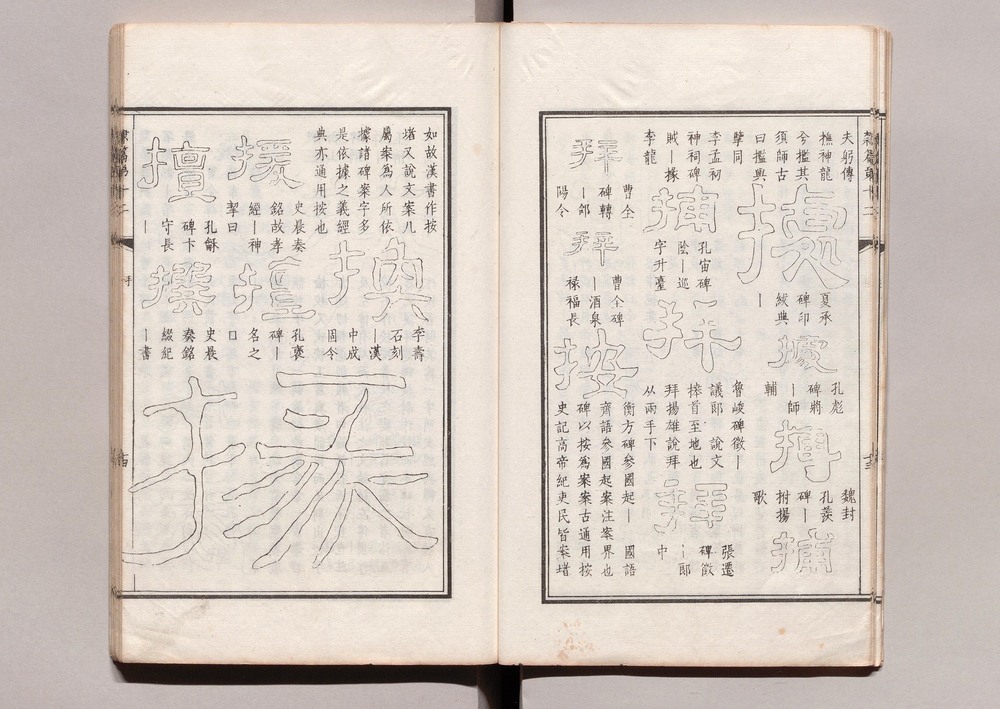 夫躬傳
撫神龍
兮攬其
須師古
曰攬與
擥同
據
夏承
碑印
紱典
丨
據
孔彪
碑將
丨師
輔
搏
魏封
孔羨
碑丨
拊揚
歌
捕
李孟初
神祠碑
賊丨掾
李龍
捕
孔宙碑
陰丨巡
字升臺
拜
魯峻碑徵丨
議郎 說文
𢳎首至地也
拜揚雄說拜
从兩手下
拜
張遷
碑徵
丨郎
中
拜
曹全
碑轉
丨郃
陽令
拜
曹全碑
丨酒泉
祿福長
按
衡方碑參國起丨 國語
齊語參國起案注案界也
碑以按為案案古通用按
史記高帝紀吏民皆案堵
如故漢書作按
堵又說文案几
屬案為人所依
據諸碑案字多
是依據之義經
典亦通用按也
換
李壽
石刻
丨漢
中成
固令
掾
援
史晨奏
銘故孝
經丨神
挈曰
擅
孔褒
碑丨
名之
口
擅
孔龢
碑卞
守長
丨
撰
史晨
奏銘
綴紀
丨書